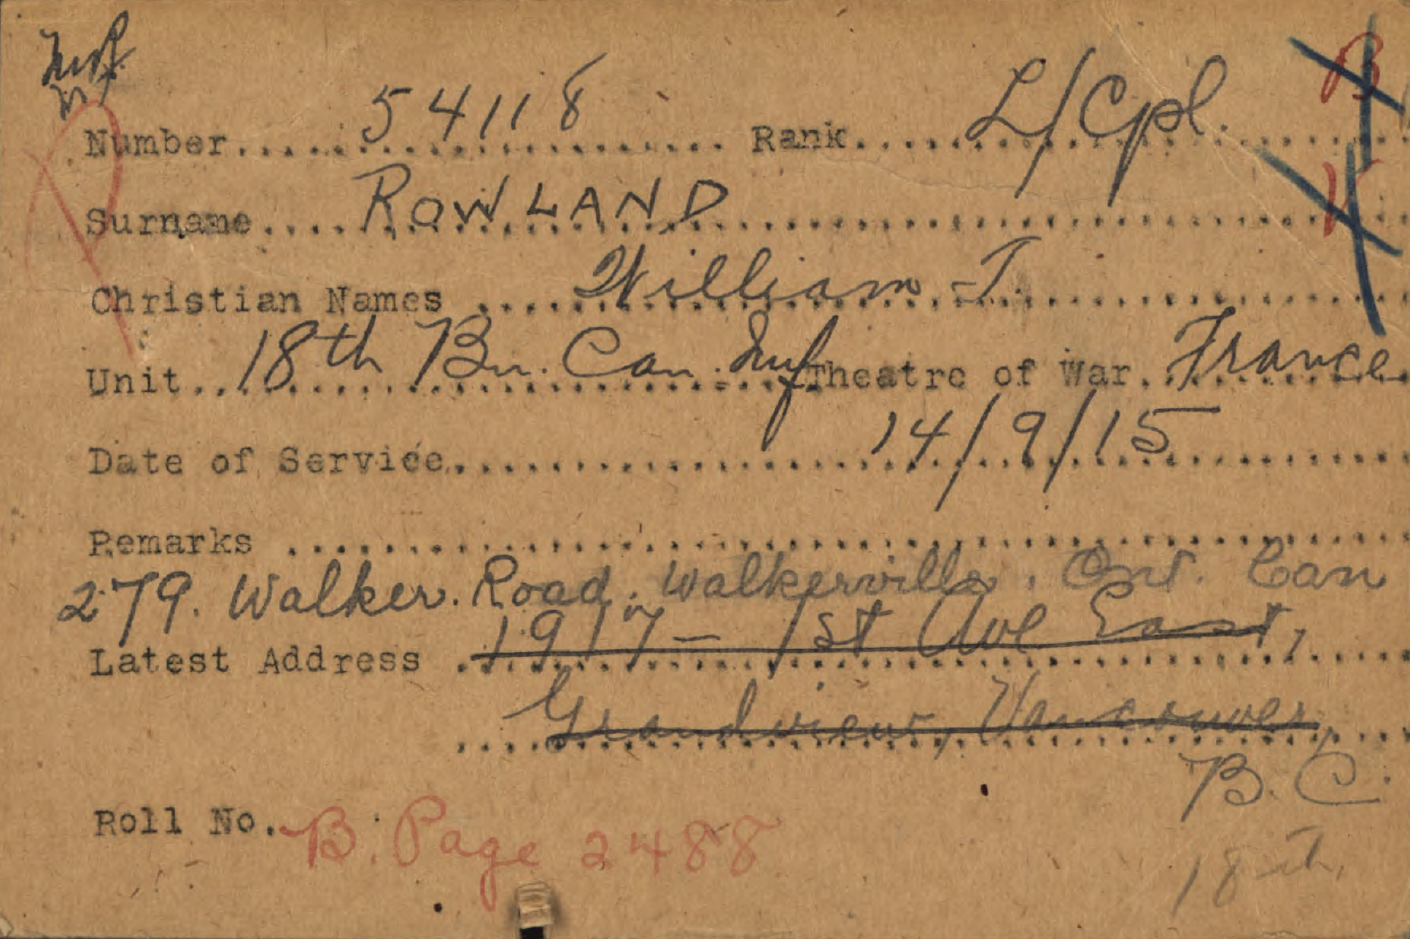 Number 54118 Rank L/Cpl. B
Surname ROWLAND V
Christian Names William J.
Unit 18th Bn. Can. Inf Theatre of War France
Date of Service 14/9/15
Remarks
279. Walker. Road. Walkerville. Ont. Can
Latest Address 1917 - 1st Ave East,
Grandview, Vancouver,
B.C.
Roll No. B. Page 2488
18th.